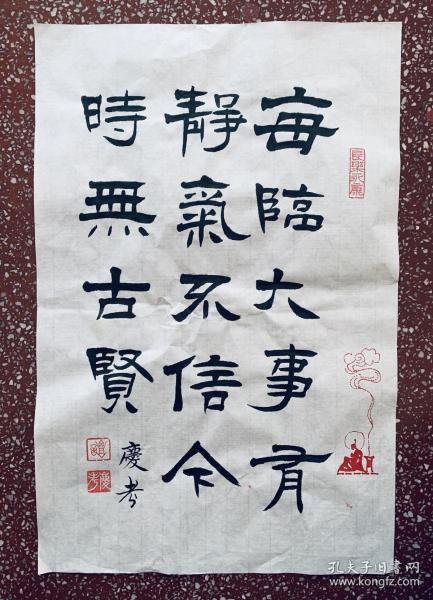 每臨大事有
靜氣不信今
時無古賢
慶孝
孔夫子旧书网
www.kongfz.com